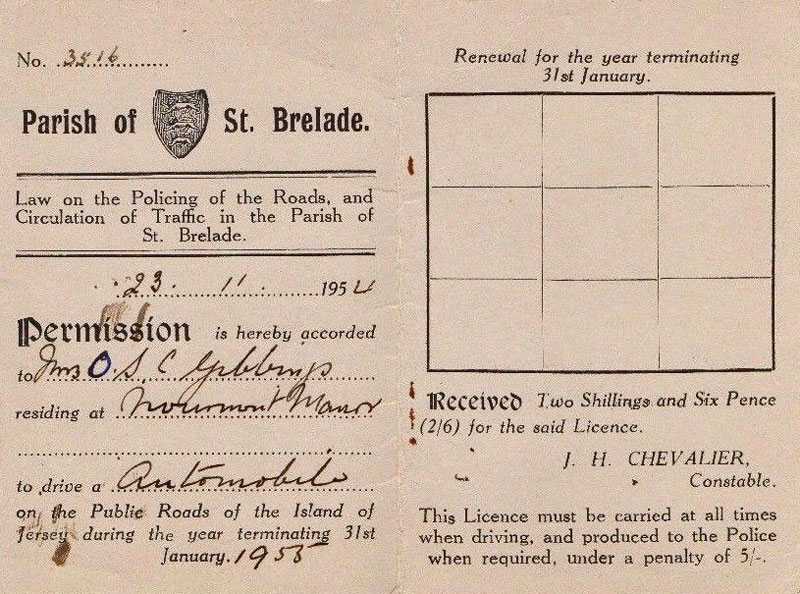 No. 3516
Parish of St. Brelade.
Law on the Policing of the Roads, and
Circulation of Traffic in the Parish of
St. Brelade.
23. 11. 1954
Permission is hereby accorded
to Mrs O.S. C Gibbings
residing at Noirmont Manor
to drive a Automobile
on the Public Roads of the Island of
Jersey during the year terminating 31st
January. 1955
Renewal for the year terminating
31st January.
Received Two Shillings and Six Pence
(2/6) for the said Licence.
J. H. CHEVALIER,
Constable.
This Licence must be carried at all times
when driving, and produced to the Police
when required, under a penalty of 5/-.